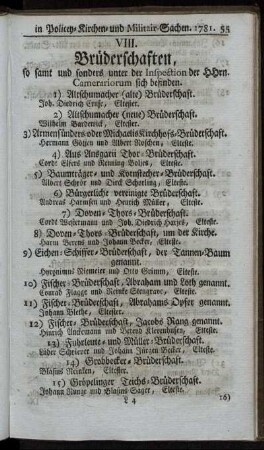 in Policey- Kirchen- und Militair-Sachen. 1781. 55
VIII.
Brüderschaften,
so samt und sonders unter der Inspection der HHrn.
Camerariorum sich befinden.
1) Altschumacher (alte) Brüderschaft.
Joh. Diedrich Eltester.
2) Altschumacher (neue) Brüderschaft.
Wilhelm Eltester.
3) Armensünders oder Michaelis Kirchhofs-Brüderschaft.
Hermann und Albert Elteste.
4) Aus Ansgarii Thor-Brüderschaft.
Cordt Elfers und Elteste.
5) Baumträger- und Kornstecher-Brüderschaft.
Albert Schrör und Diert Elteste.
6) Bürgerliche vereinigte Brüderschaft.
Andreas Harmsen und Henrich Müller, Elteste.
7) Doven-Thors-Brüderschaft.
Cordt und Joh. Diedrich Elteste.
8) Doven-Thors-Brüderschaft, um der Kirche.
Harm Berens und Johann Becker, Elteste.
9) Eichen-Schiffer-Brüderschaft, der Tannen-Baum
genannt.
Hieronimus Niemeier und Otto Grimm, Elteste.
10) Fischer-Brüderschaft, Abraham und Loth genannt.
Conrad und Elteste.
11) Fischer-Brüderschaft, Abrahams Opfer genannt.
Johann Elteste.
12) Fischer-Brüderschaft, Jacobs Rang genannt.
Hinrich und Elteste.
13) Fuhrleute- und Müller-Brüderschaft.
Lüder und Johann Jürgen Elteste.
14) Grobbecker-Brüderschaft.
Blasius Elteste.
15) Gröpelinger Teichs-Brüderschaft.
Johann und Blasius Elteste.
L 4
16)